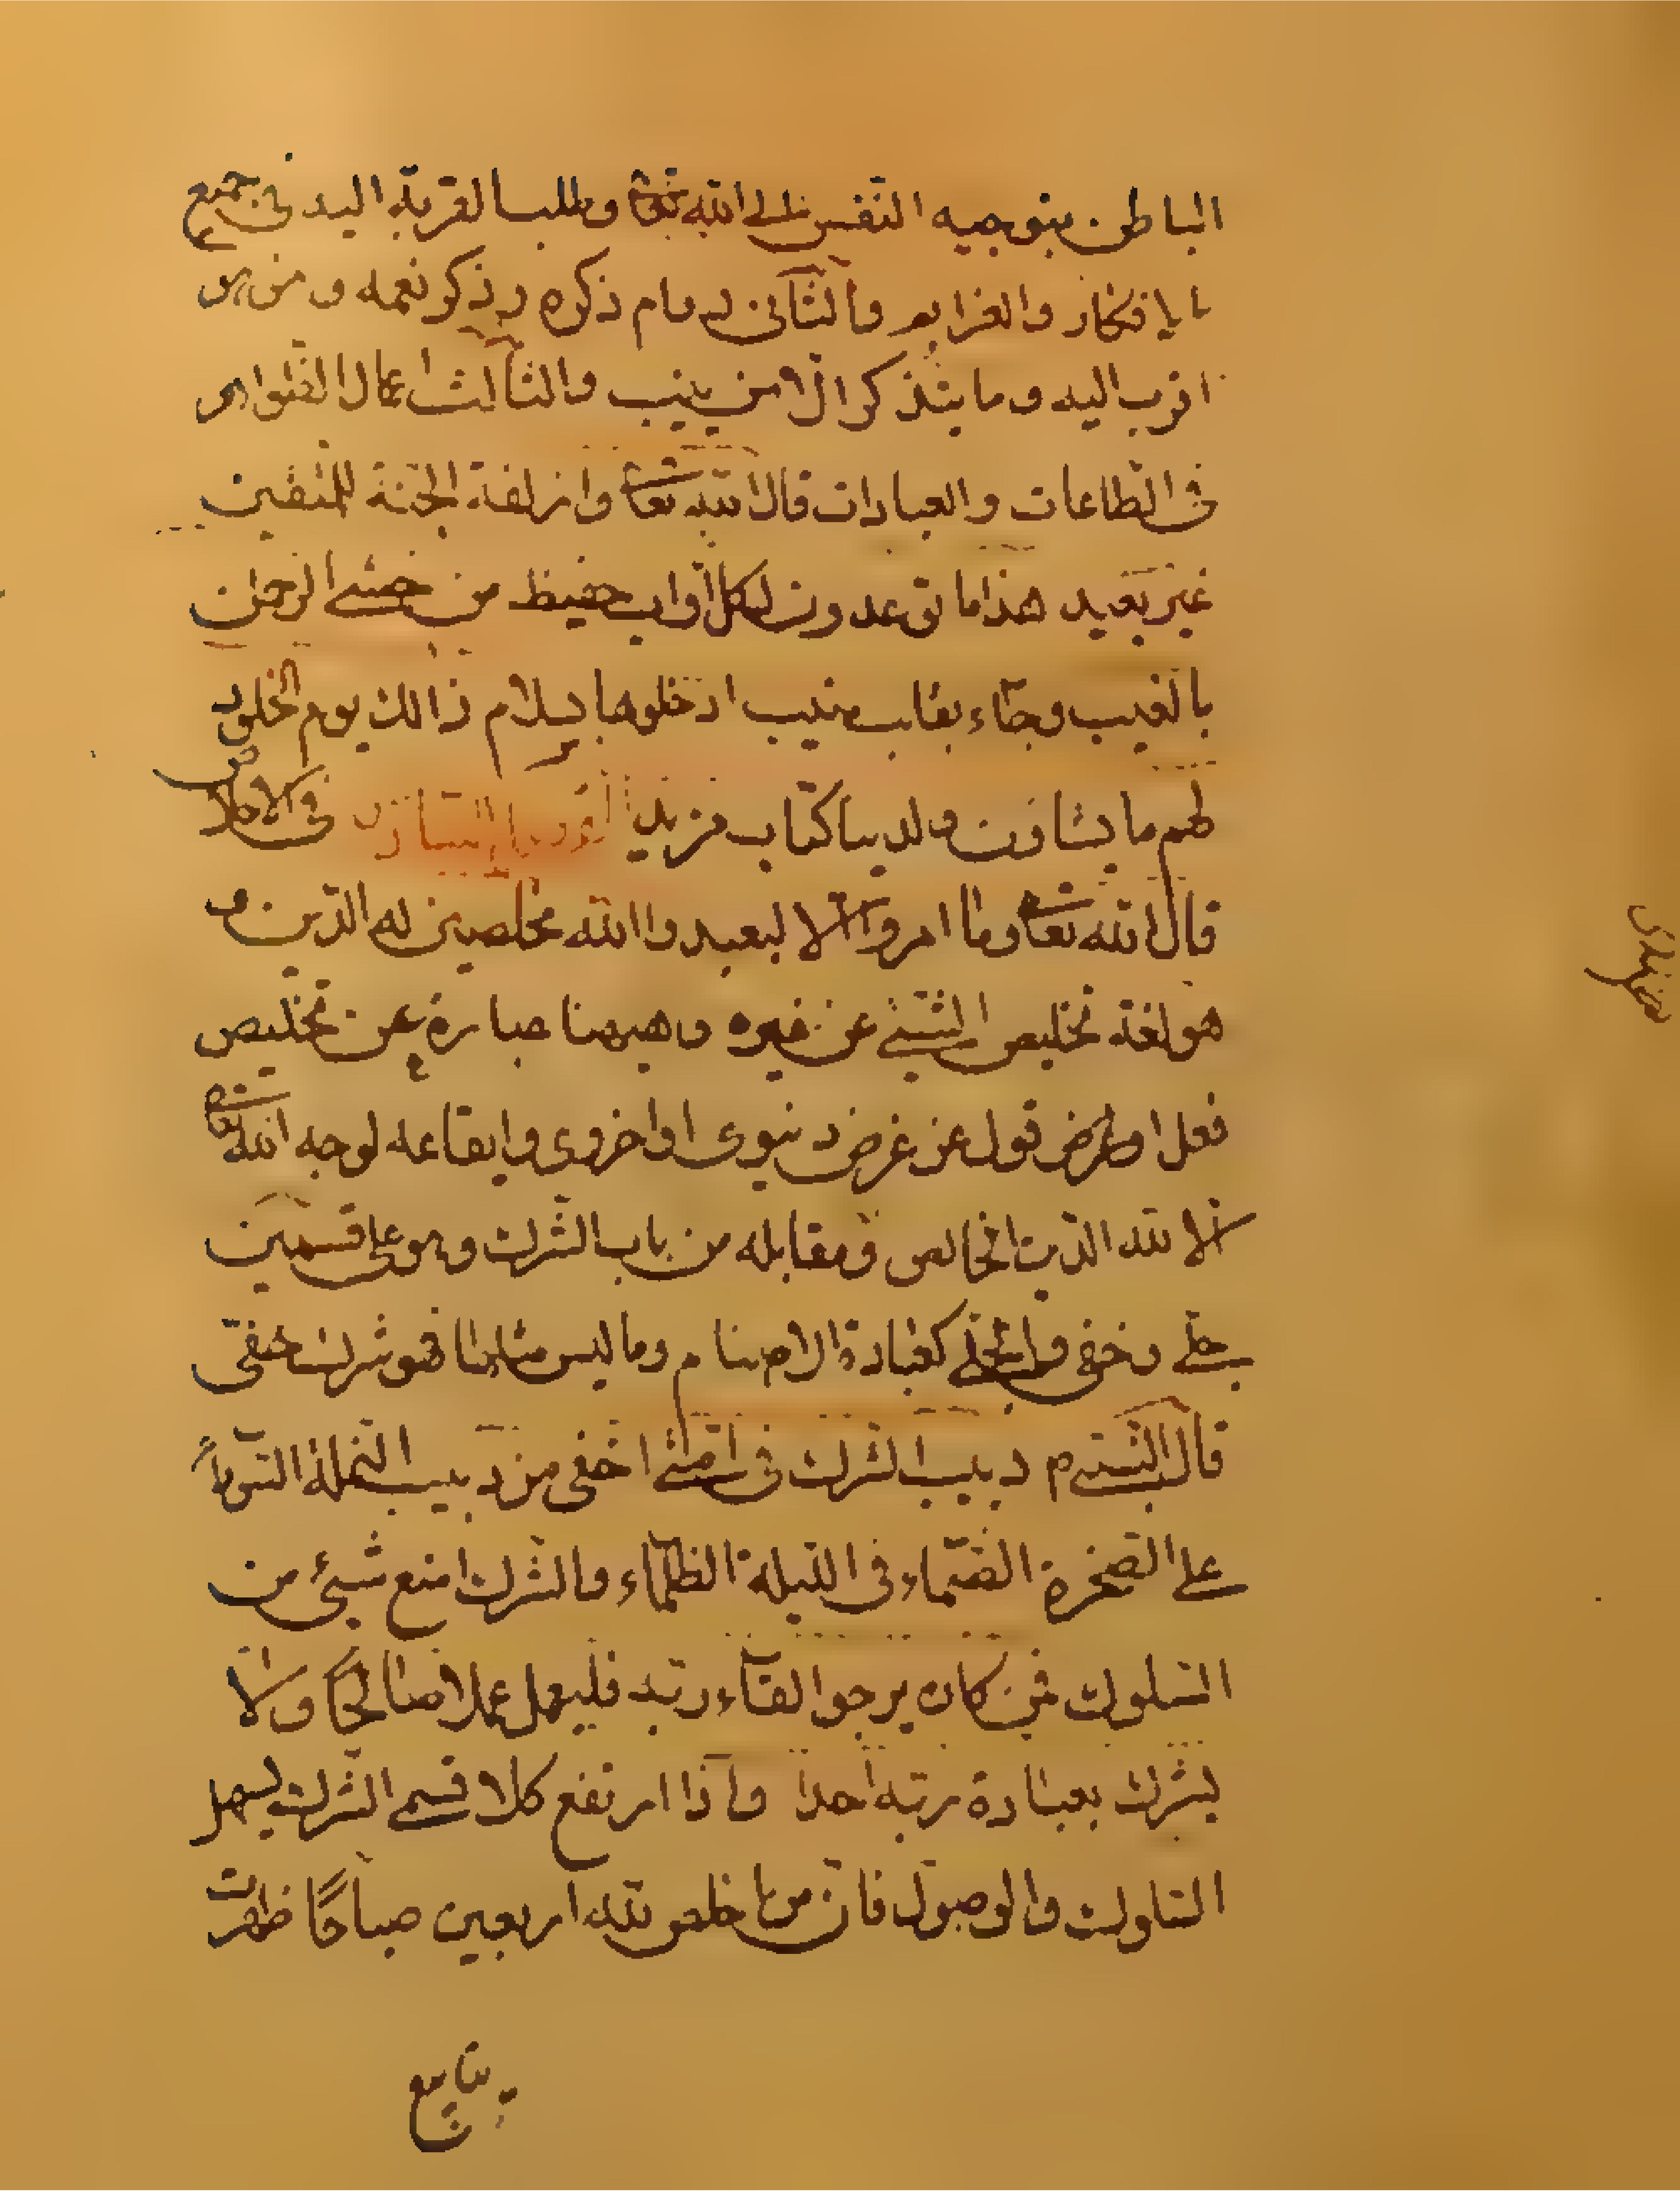 الباطن بتوجيه النفس الى الله تعالى وطلب القربة اليه فى جميع
بالافكار والعزايم والثانى دوام ذكره وذكر نعمه ومن هو
اقرب اليه وما يتذكر الّا من ينيب والثالث اعمال الظواهر
فى الطاعات والعبادات قال الله تعا وازلفة الجنة للمتقين
غير بعيد هذا ما توعدون لكل اوّاب حفيظ من خشى الرحمن
بالغيب وجاء بقلب منيب ادخلوها بسلام ذالك يوم الخلود
لهم ما يشاؤن ولدينا كتاب مزيد فى الاخلاص
قال الله تعا وما امروا الّا ليعبدوا الله مخلصين له الدّين و
هو لغة تخليص الشئ عن غيره وههنا عبارة عن تخليص
فعل او قول عن غرض دنيوى او اخروى وايقاعه لوجه الله تعا
الا لله الدّين الخالص ومقابله من باب الشّرك وهو على قسمين
جلى وخفى والجلى كعبادة الاصنام وما ليس مثلها فهو شرك خفىّ
قال النّبى م دبيب الشرك فى امتى اخفى من دبيب النملة السّوداء
على الصّخرة الصّمّاء فى اللّيلة الظلماء والشّرك امنع شيئ من
السّلوك فمن كان يرجوا لقاء ربّه فليعمل عملا صالحًا ولا
يشرك بعبادة ربّه احدا واذا ارتفع كلا قسمى الشّرك يسهل
السّلوك والوصول فانّ من اخلص لله اربعين صباحًا ظهرت
ينابيع